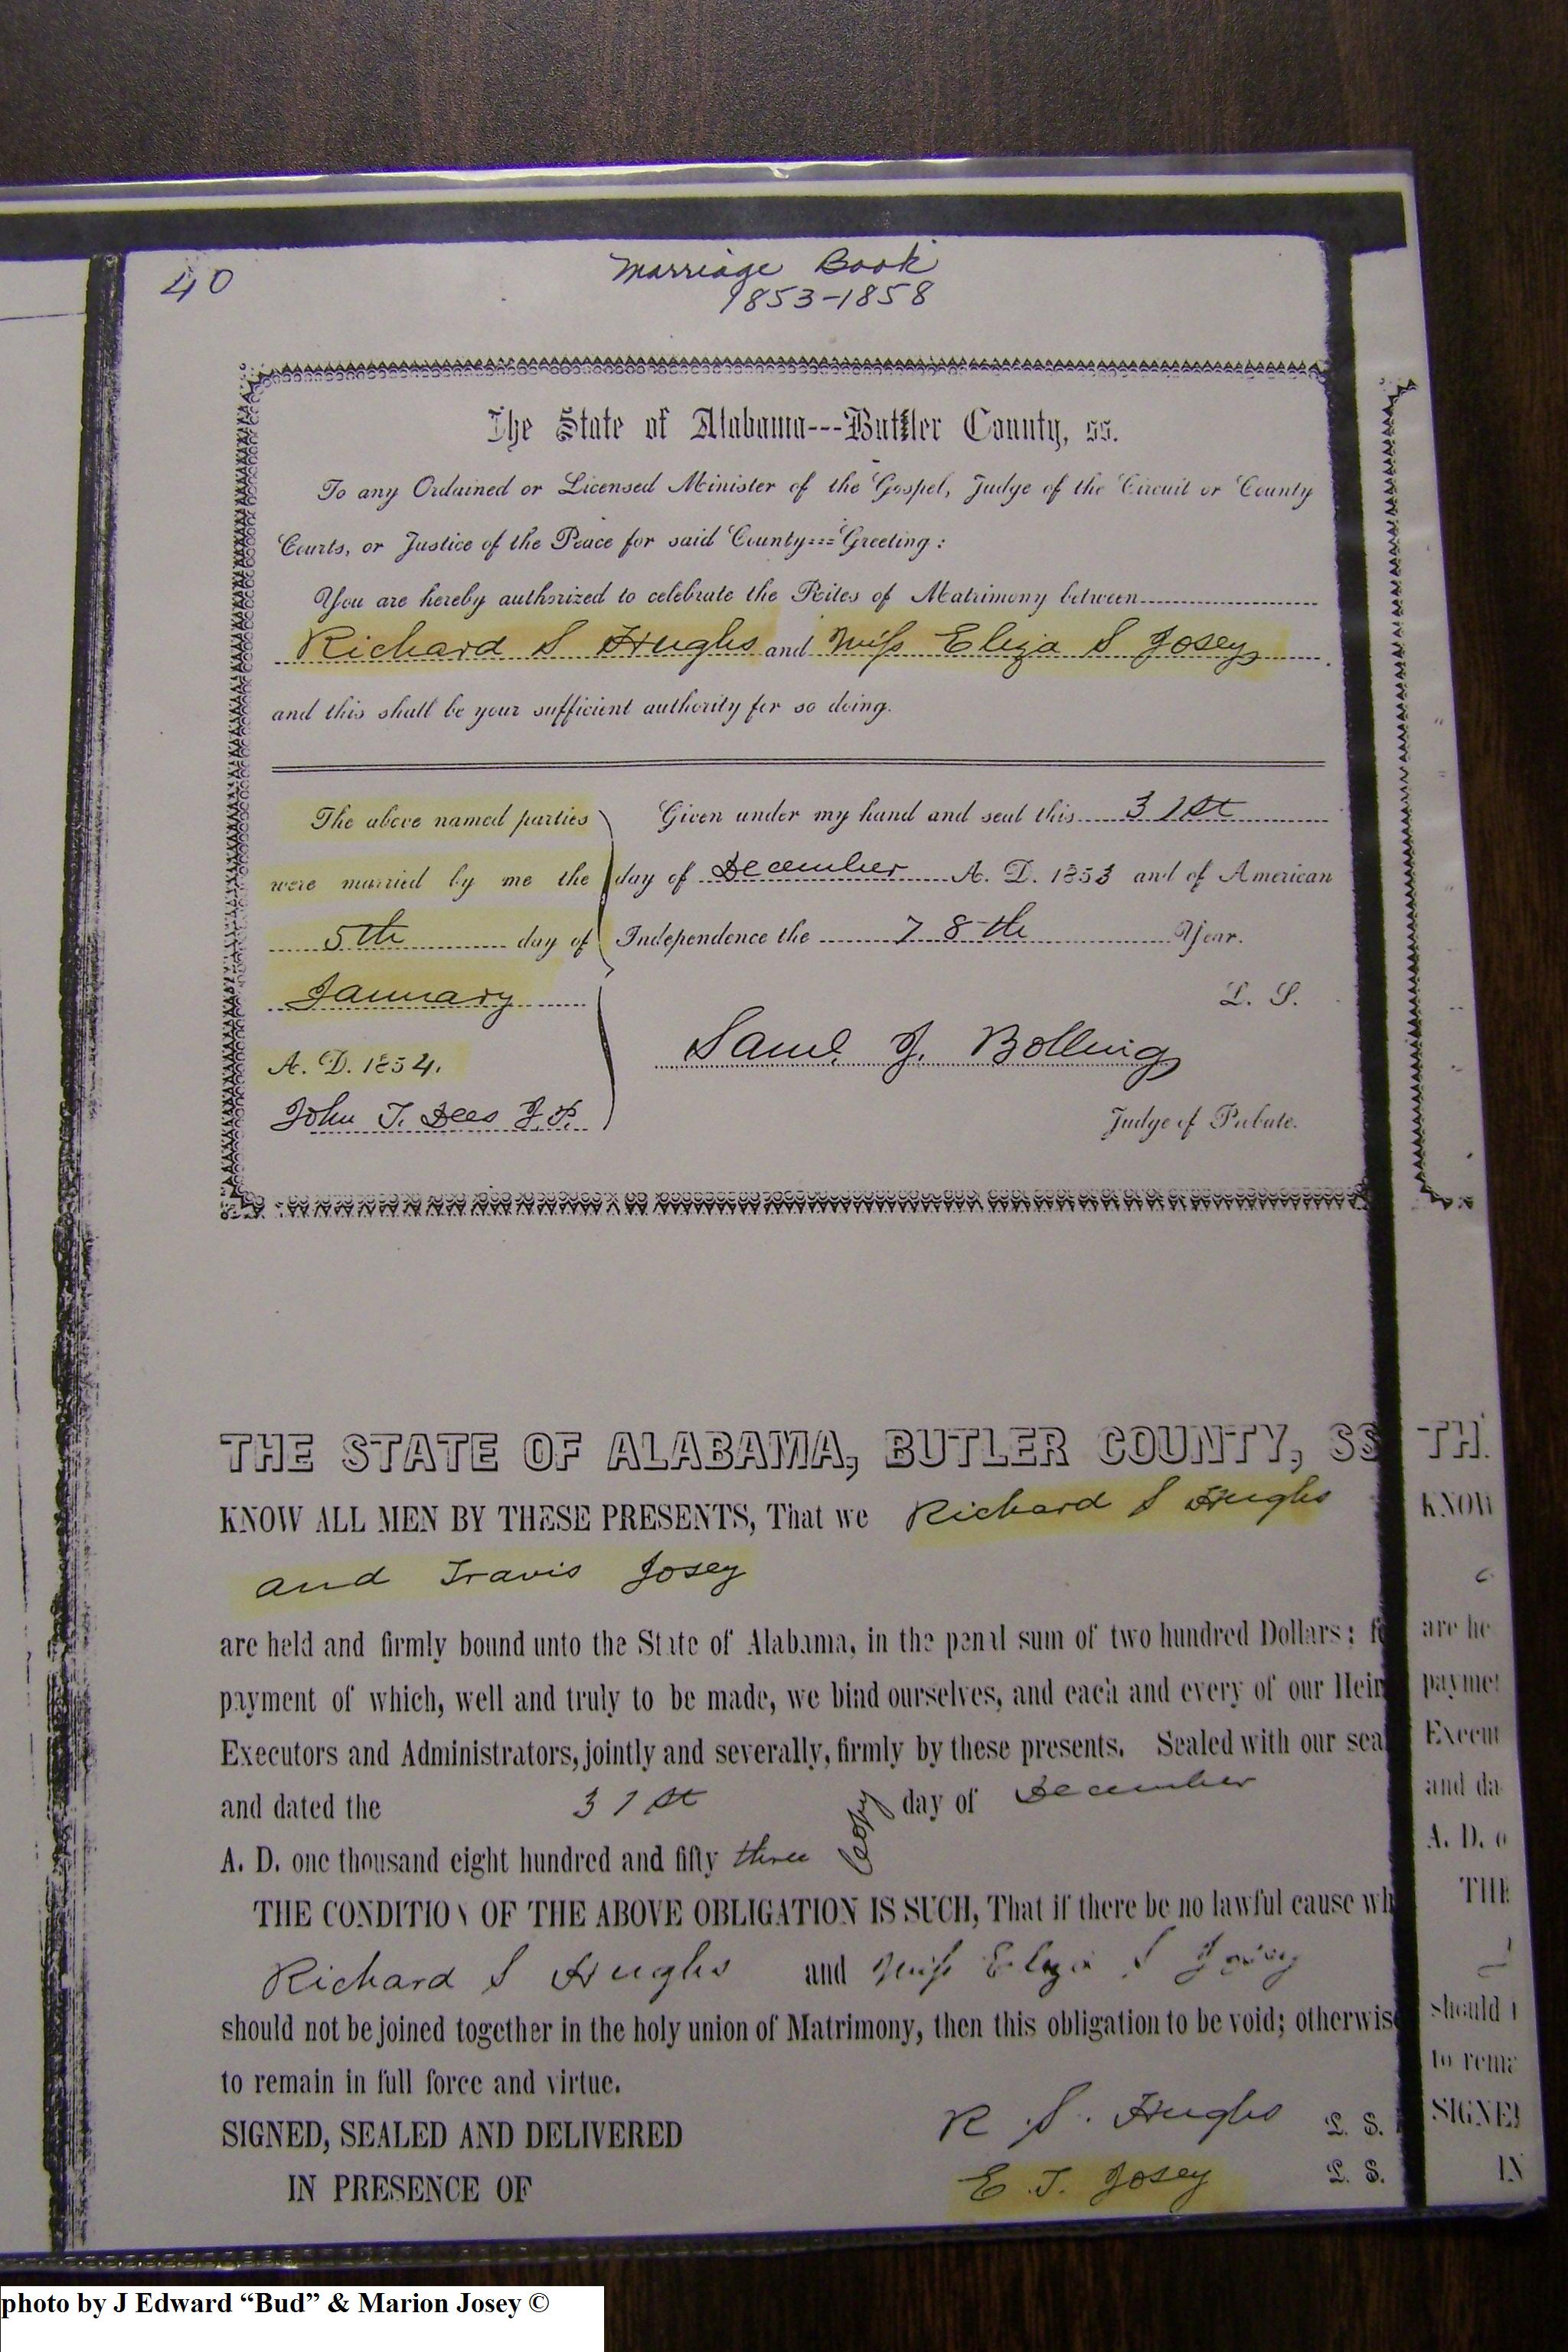 40
Marriage Book
1853-1858
The State of Alabama---Buttler County, ss.
To any Ordained or Licensed Minister of the Gospel, Judge of the Circuit or County
Courts, or Justice of the Peace for said County===Greeting:
You are hereby authorized to celebrate the Rites of Matrimony between
Richard S Hughs and Miss Eliza S Josey
and this shall be your sufficient authority for so doing.
The above named parties
were married by me the
5th day of
January
A. D. 1854.
John T. Dees J.P.
Given under my hand and seal this 31st
day of December A. D. 1853 and of American
Independence the 78th Year.
L. S.
Saml. J. Bolling
Judge of Probate.
THE STATE OF ALABAMA, BUTLER COUNTY, SS
KNOW ALL MEN BY THESE PRESENTS, That we Richard S Hughs
and Travis Josey
are held and firmly bound unto the State of Alabama, in the penal sum of two hundred Dollars; f
payment of which, well and truly to be made, we bind ourselves, and each and every of our Heir
Executors and Administrators, jointly and severally, firmly by these presents. Sealed with our sea
and dated the 31st day of December
Copy
A. D. one thousand eight hundred and fifty three
THE CONDITION OF THE ABOVE OBLIGATION IS SUCH, That if there be no lawful cause wh
Richard S Hughs and Miss Eliza S Josey
should not be joined together in the holy union of Matrimony, then this obligation to be void; otherwis
to remain in full force and virtue.
SIGNED, SEALED AND DELIVERED
IN PRESENCE OF
R. S. Hughs L. S.
E. T. Josey L. S.
TH
KNOW
are he
payme
Execut
and da
A. D. o
THE
should
to rema
SIGNE
IN
photo by J Edward “Bud” & Marion Josey ©